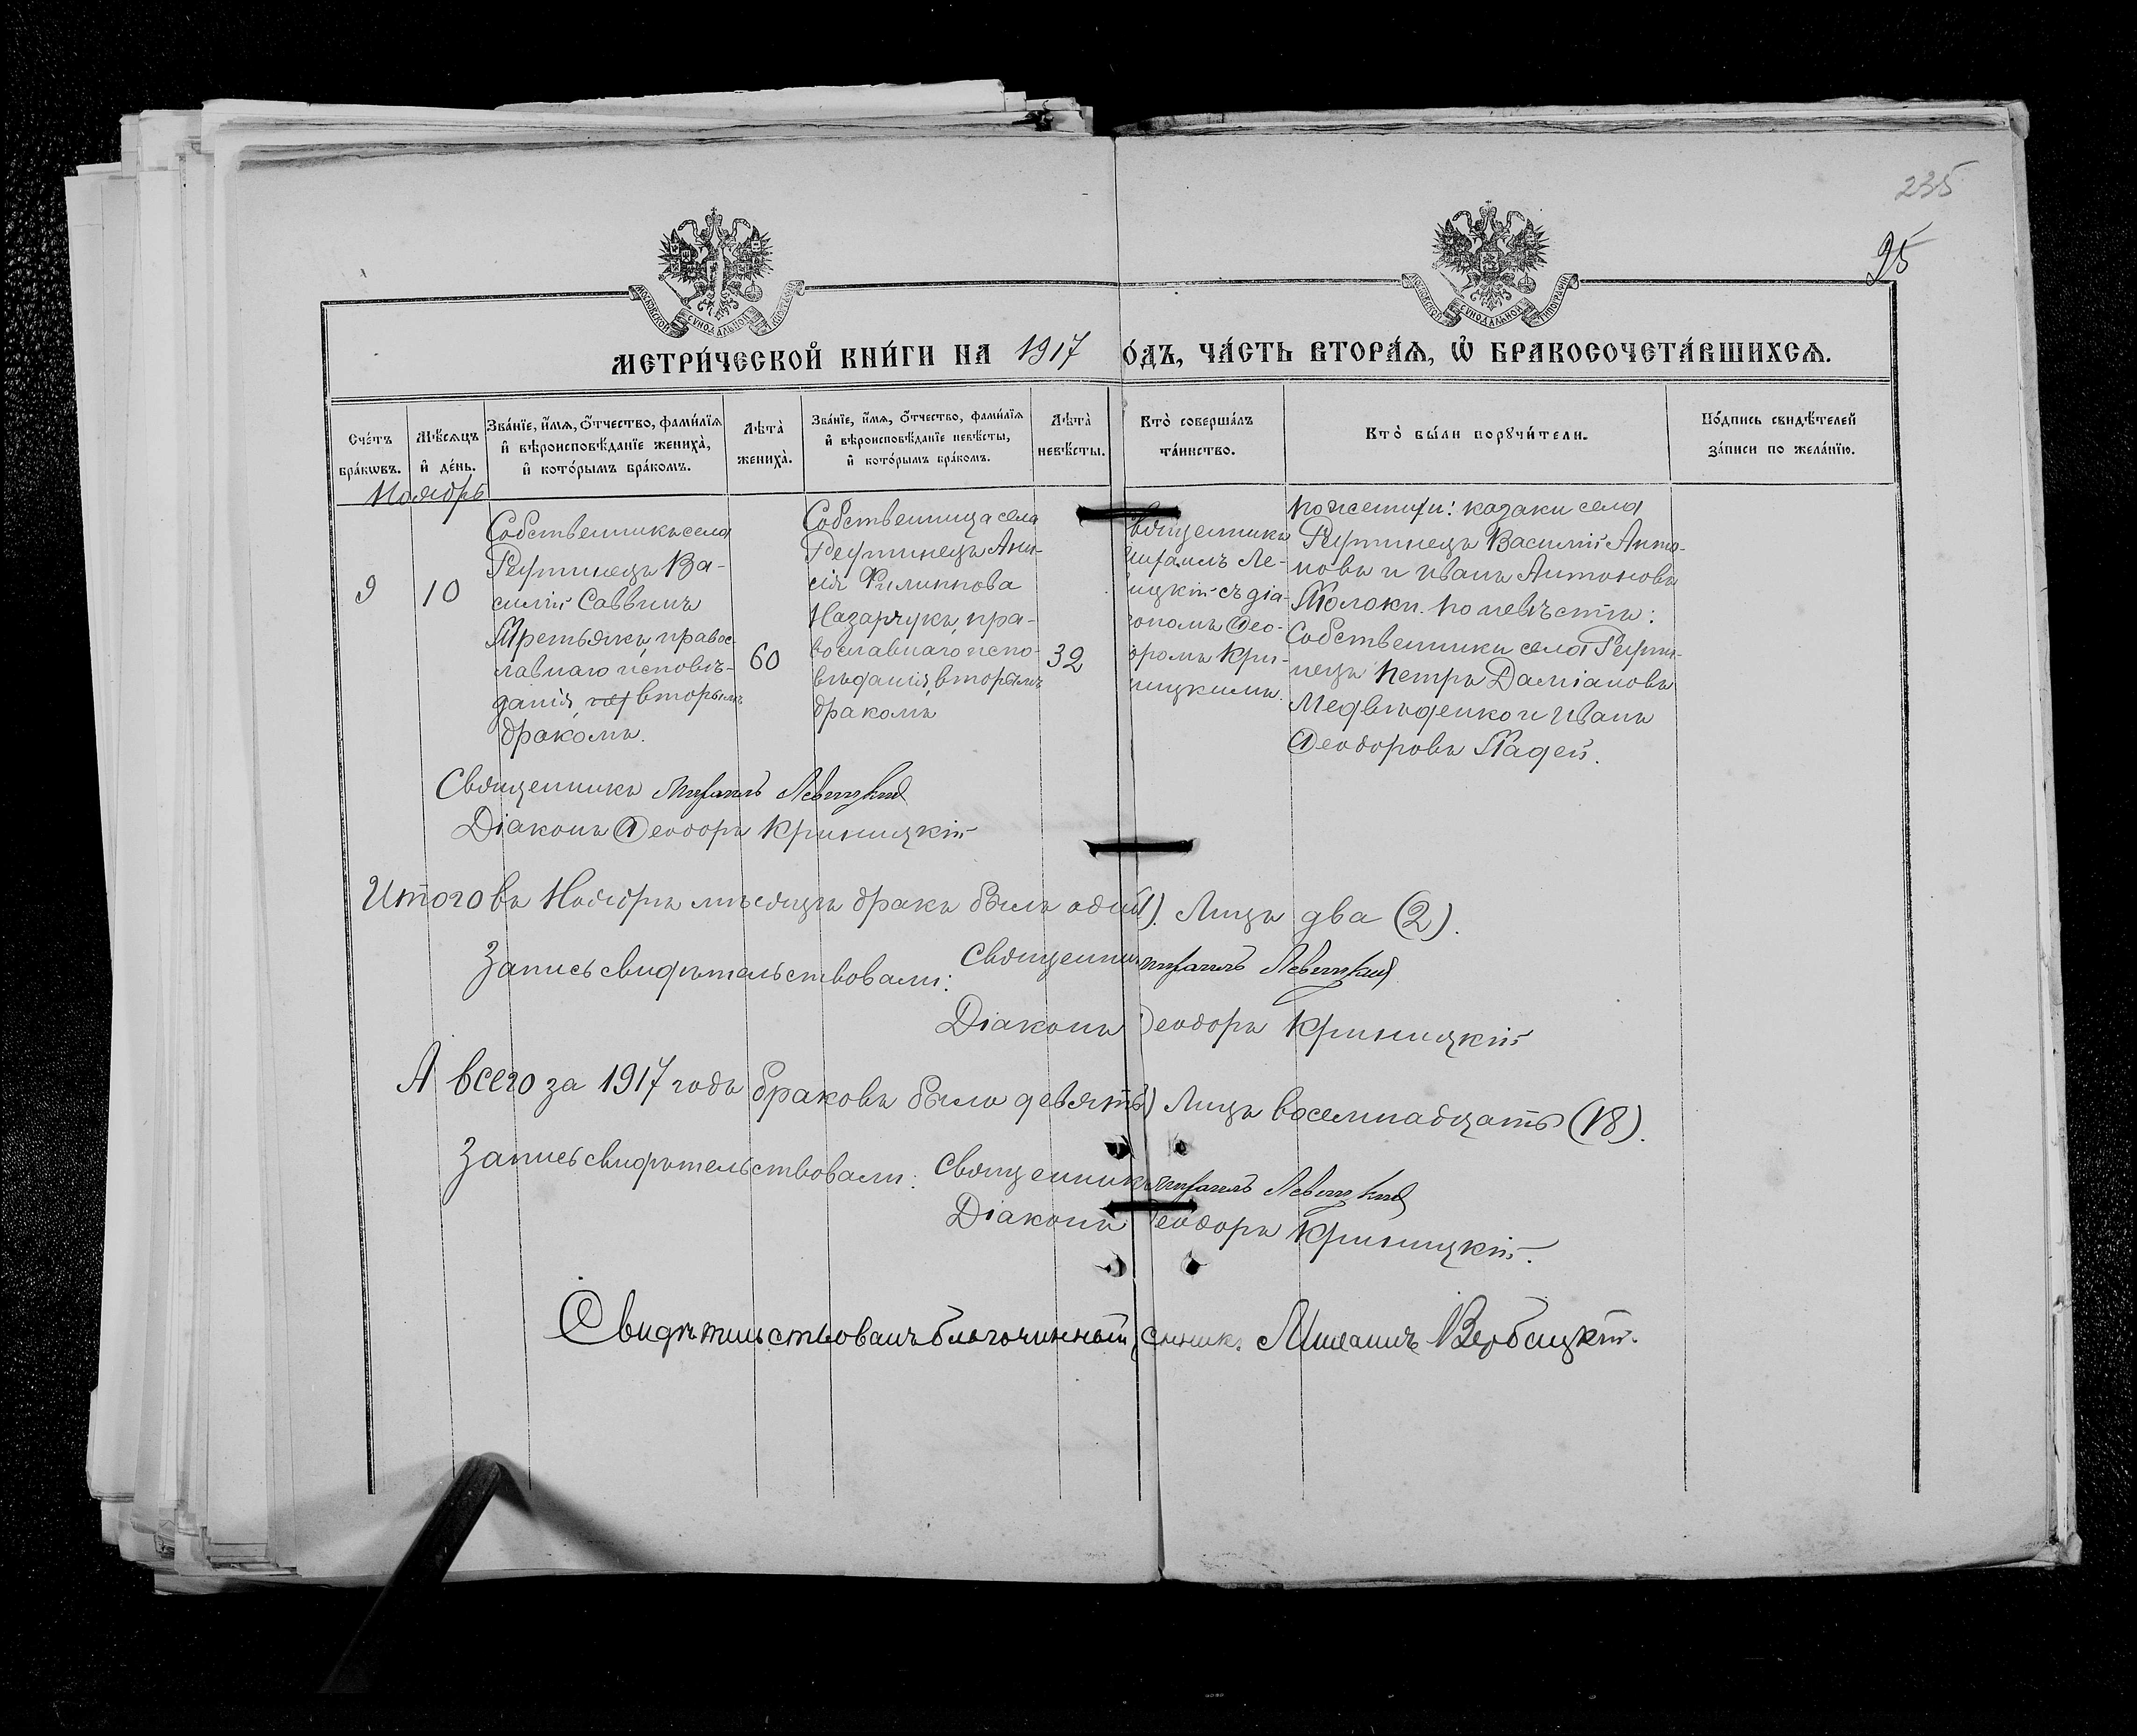 235
95
МОСКОВСКОЙ СѴНОДАЛЬНОЙ ТИПОГРАФІИ
МОСКОВСКОЙ СѴНОДАЛЬНОЙ ТИПОГРАФІИ
МЕТРИ́ЧЕСКОЙ КНИ́ГИ НА 1917 О́ДЪ, ЧА́СТЬ ВТОРА́Ѧ, Ѡ҆ БРАКОСОЧЕТА́ВШИХСѦ.
Сче́тъ
бра́кѡвъ.
Мѣ́сѧцъ
и҆ де́нь.
Зва́нїе, и҆́мѧ, ѻ҆́тчество, фами́лїѧ
и҆ вѣроисповѣ́данїе жениха̀,
и҆ кото́рымъ бра́комъ.
Лѣта̀
жениха̀.
Зва́нїе, и҆́мѧ, ѻ҆́тчество, фами́лїѧ
и҆ вѣроисповѣ́данїе невѣ́сты,
и҆ кото́рымъ бра́комъ.
Лѣта̀
невѣ́сты.
Кто̀ соверша́лъ
та́инство.
Кто̀ бы́ли порꙋчи́тели.
По́дпись свидѣ́телей
за́писи по жела́нїю.
Ноябрь
9
10
Собственникъ села
Реутинецъ Ва-
силій Саввинъ
Третьякъ, правос-
лавнаго исповѣ-
данія, вторымъ
бракомъ.
60
Собственница села
Реутинецъ Ани-
сія Филиппова
Назарчукъ, пра-
вославнаго испо-
вѣданія, вторымъ
бракомъ
32
вященникъ
ихаилъ Ле-
ицкій съ діа-
кономъ Ѳео-
доромъ Кри-
ницкимъ.
По женихи: казаки села
Реутинецъ Василій Анто-
новъ и Иванъ Антоновъ
Толоки. По невѣстѣ:
Собственники села Реути-
нецъ Петръ Даміановъ
Медвѣденко и Иванъ
Ѳеодоровъ Падей.
Священникъ Михаилъ Левицкій
Діаконъ Ѳеодоръ Криницкій
Итого въ Ноябрѣ мѣсяцѣ бракъ былъ оди 1). Лицъ два (2).
Запись свидѣтельствовали: Священник Михаилъ Левицкій
Діаконъ Ѳеодоръ Криницкій
А всего за 1917 годъ браковъ было девять) Лицъ восемнадцать (18).
Запись свидѣтельствовали: Священникъ Михаилъ Левицкій
Діаконъ Ѳеодоръ Криницкій.
Свидѣтельствовалъ благочинный, Михаилъ Вербицкій.